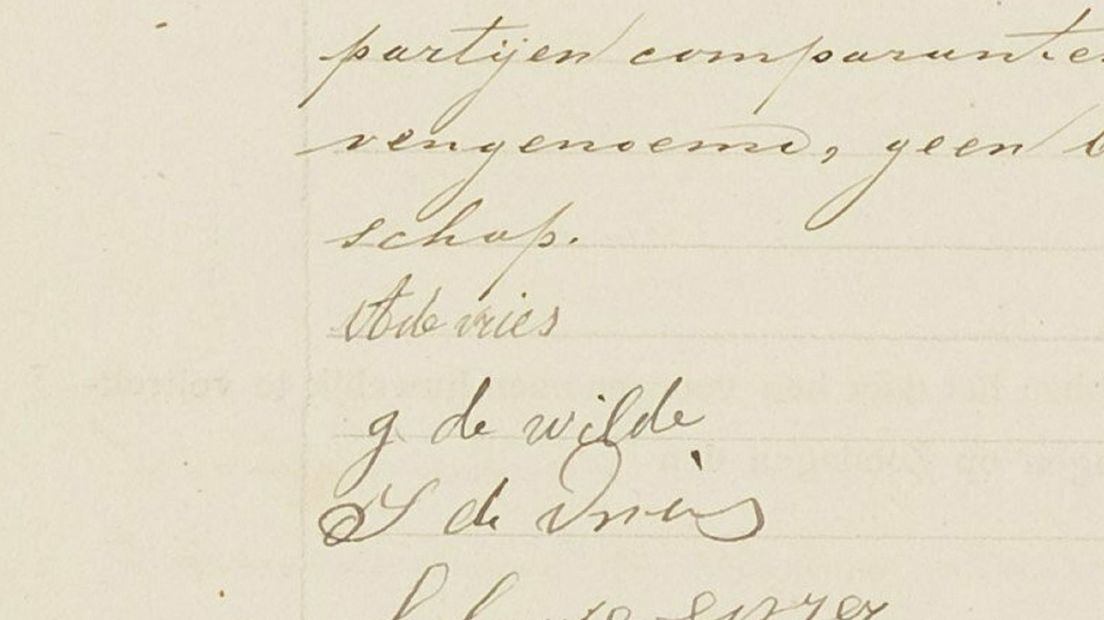 partijen comparanten
vengenoemd, geen b
schap.
A de vries
g de wilde
S de Vries